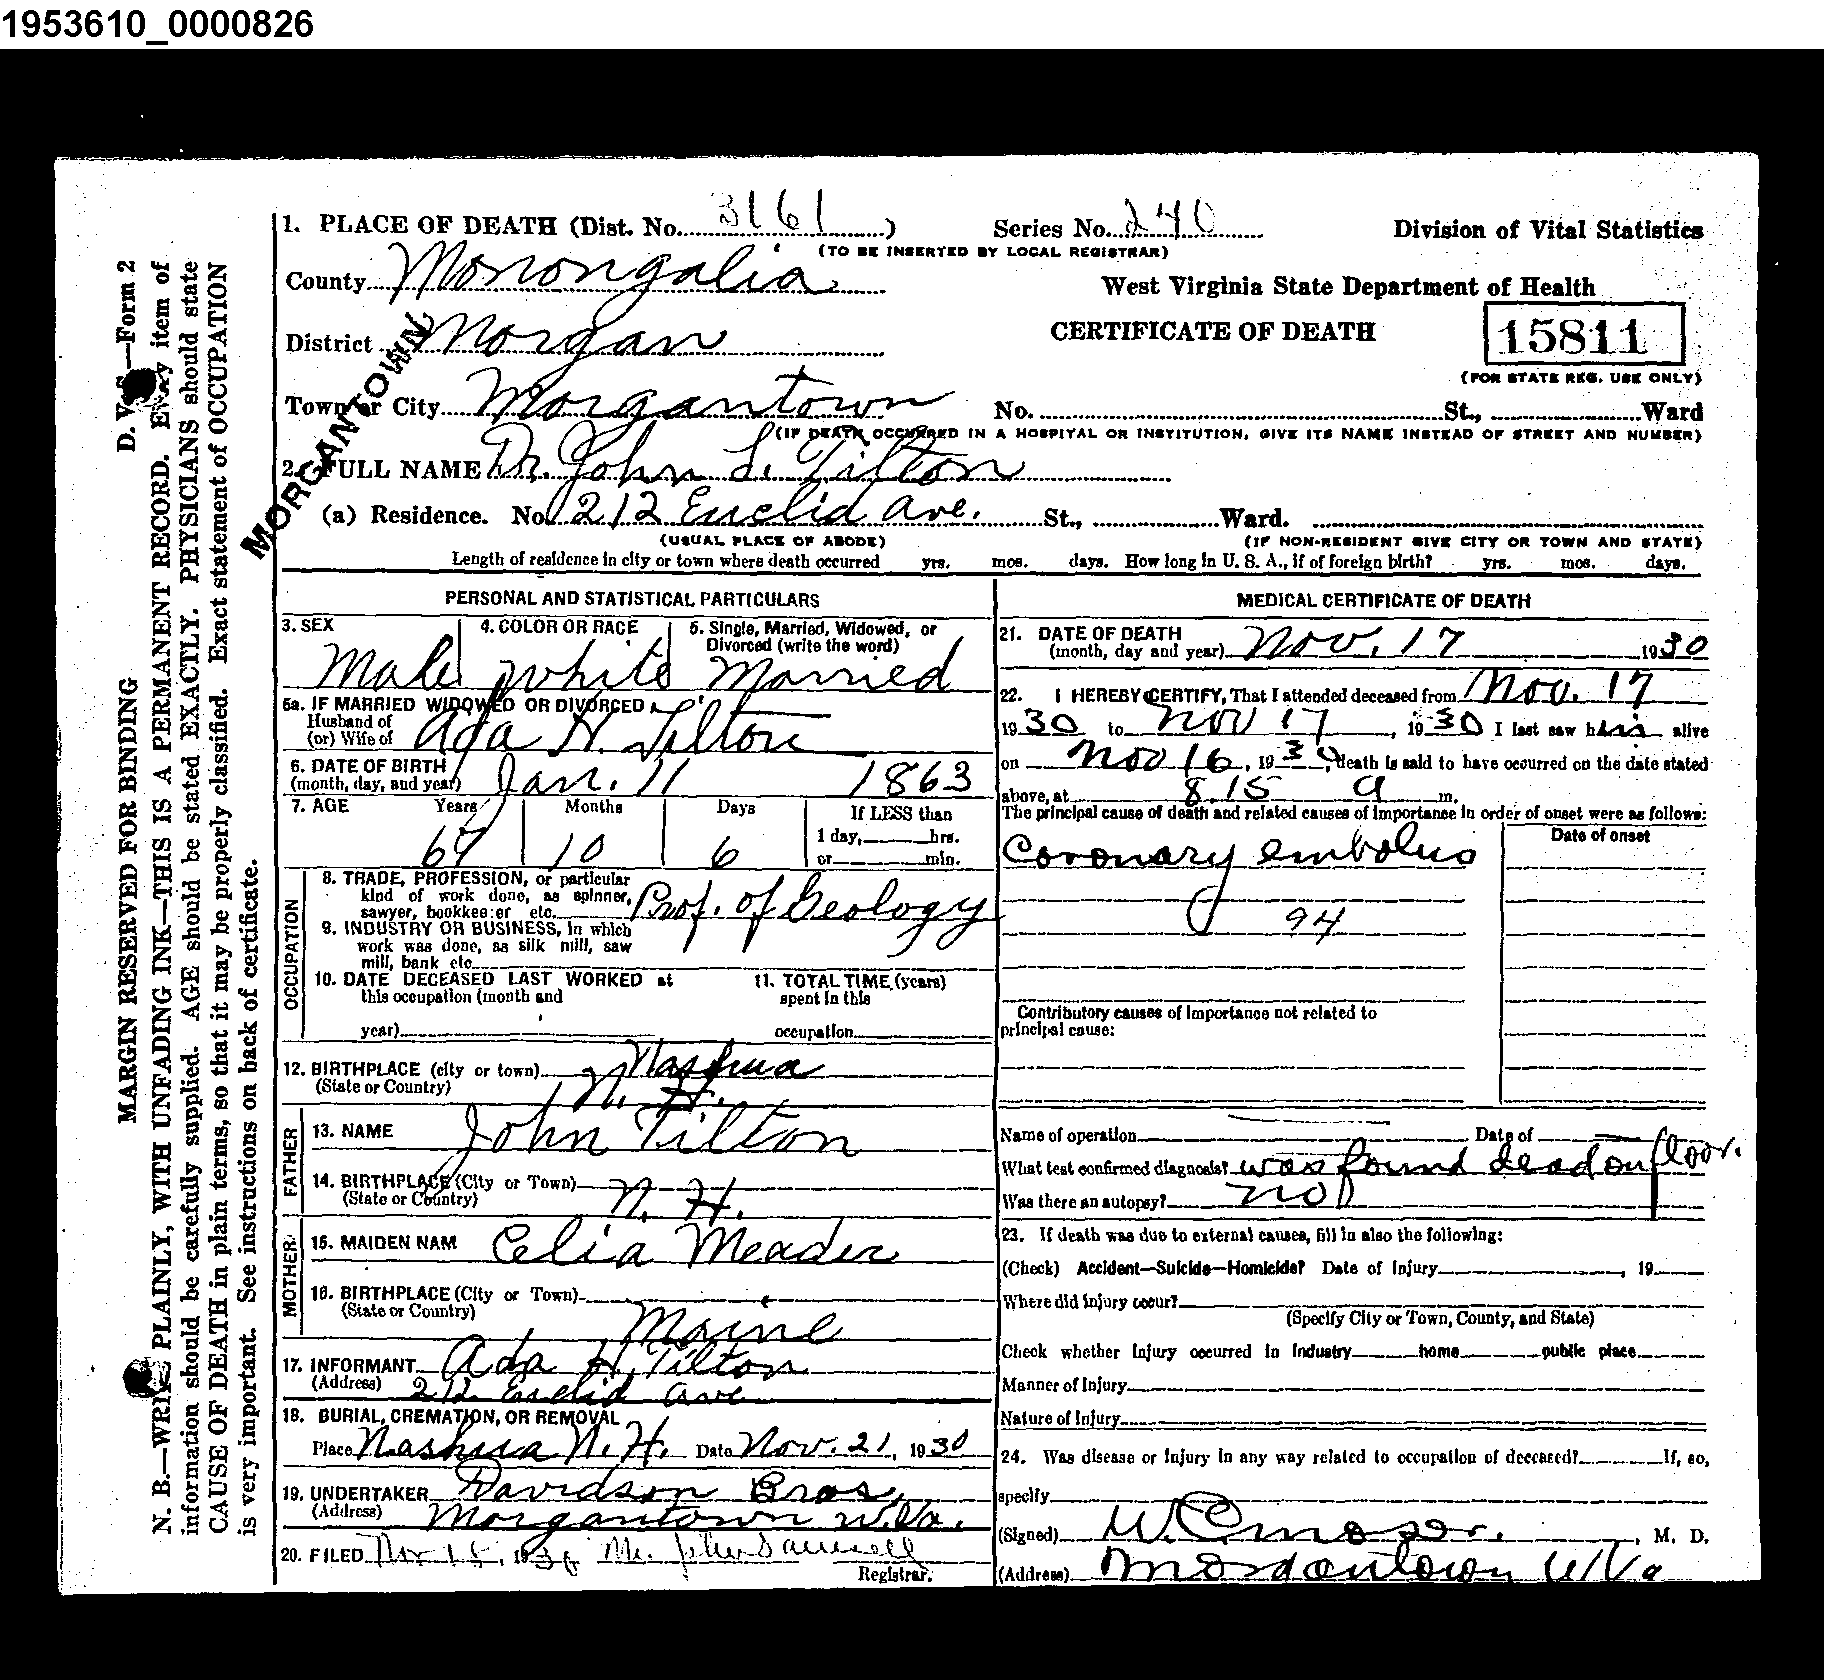 1953610_0000826
1. PLACE OF DEATH (Dist. No. 3161) Series No. 240 Division of Vital Statistics
(TO BE INSERTED BY LOCAL REGISTRAR)
County Monongalia West Virginia State Department of Health
District Morgan CERTIFICATE OF DEATH 15811
(FOR STATE REG. USE ONLY)
Town or City Morgantown No. St., Ward
(IF DEATH OCCURRED IN A HOSPITAL OR INSTITUTION, GIVE ITS NAME INSTEAD OF STREET AND NUMBER)
MORGANTOWN
2. FULL NAME Dr. John L. Tilton
(a) Residence. No. 212 Euclid Ave. St., Ward.
(USUAL PLACE OF ABODE) (IF NON-RESIDENT GIVE CITY OR TOWN AND STATE)
Length of residence in city or town where death occurred yrs. mos. days. How long in U. S. A., if of foreign birth? yrs. mos. days.
D. V. S.—Form 2
MARGIN RESERVED FOR BINDING
N. B.—WRITE PLAINLY, WITH UNFADING INK—THIS IS A PERMANENT RECORD. Every item of
information should be carefully supplied. AGE should be stated EXACTLY. PHYSICIANS should state
CAUSE OF DEATH in plain terms, so that it may be properly classified. Exact statement of OCCUPATION
is very important. See instructions on back of certificate.
PERSONAL AND STATISTICAL PARTICULARS
3. SEX 4. COLOR OR RACE 5. Single, Married, Widowed, or
Divorced (write the word)
Male White Married
5a. IF MARRIED WIDOWED OR DIVORCED
Husband of
(or) Wife of Ada H. Tilton
6. DATE OF BIRTH
(month, day, and year) Jan. 11 1863
7. AGE Years Months Days If LESS than
1 day, hrs.
67 10 6 or min.
OCCUPATION
8. TRADE, PROFESSION, or particular
kind of work done, as spinner,
sawyer, bookkeeper etc. Prof. of Geology
9. INDUSTRY OR BUSINESS, in which
work was done, as silk mill, saw
mill, bank etc.
10. DATE DECEASED LAST WORKED at 11. TOTAL TIME (years)
this occupation (month and spent in this
year) occupation
12. BIRTHPLACE (city or town) Nashua
(State or Country) N. H.
FATHER
13. NAME John Tilton
14. BIRTHPLACE (City or Town)
(State or Country) N. H.
MOTHER
15. MAIDEN NAM Celia Meader
16. BIRTHPLACE (City or Town)
(State or Country) Maine
17. INFORMANT Ada H. Tilton
(Address) 212 Euclid Ave
18. BURIAL, CREMATION, OR REMOVAL
Place Nashua N. H. Date Nov. 21, 1930
19. UNDERTAKER Davidson Bros.
(Address) Morgantown W. Va.
20. FILED Nov 1930
Registrar.
MEDICAL CERTIFICATE OF DEATH
21. DATE OF DEATH
(month, day and year) Nov. 17 1930
22. I HEREBY CERTIFY, That I attended deceased from Nov. 17
1930 to Nov 17, 1930 I last saw him alive
on Nov 16, 1930, death is said to have occurred on the date stated
above, at 8.15 a m.
The principal cause of death and related causes of importance in order of onset were as follows:
Date of onset
Coronary embolus
94
Contributory causes of importance not related to
principal cause:
Name of operation Date of
What test confirmed diagnosis? was found dead on floor.
Was there an autopsy? no
23. If death was due to external causes, fill in also the following:
(Check) Accident—Suicide—Homicide? Date of Injury , 19
Where did injury occur?
(Specify City or Town, County, and State)
Check whether injury occurred in Industry home public place
Manner of Injury
Nature of Injury
24. Was disease or injury in any way related to occupation of deceased? If, so,
specify
(Signed) W. C. Moser. , M. D.
(Address) Morgantown W Va